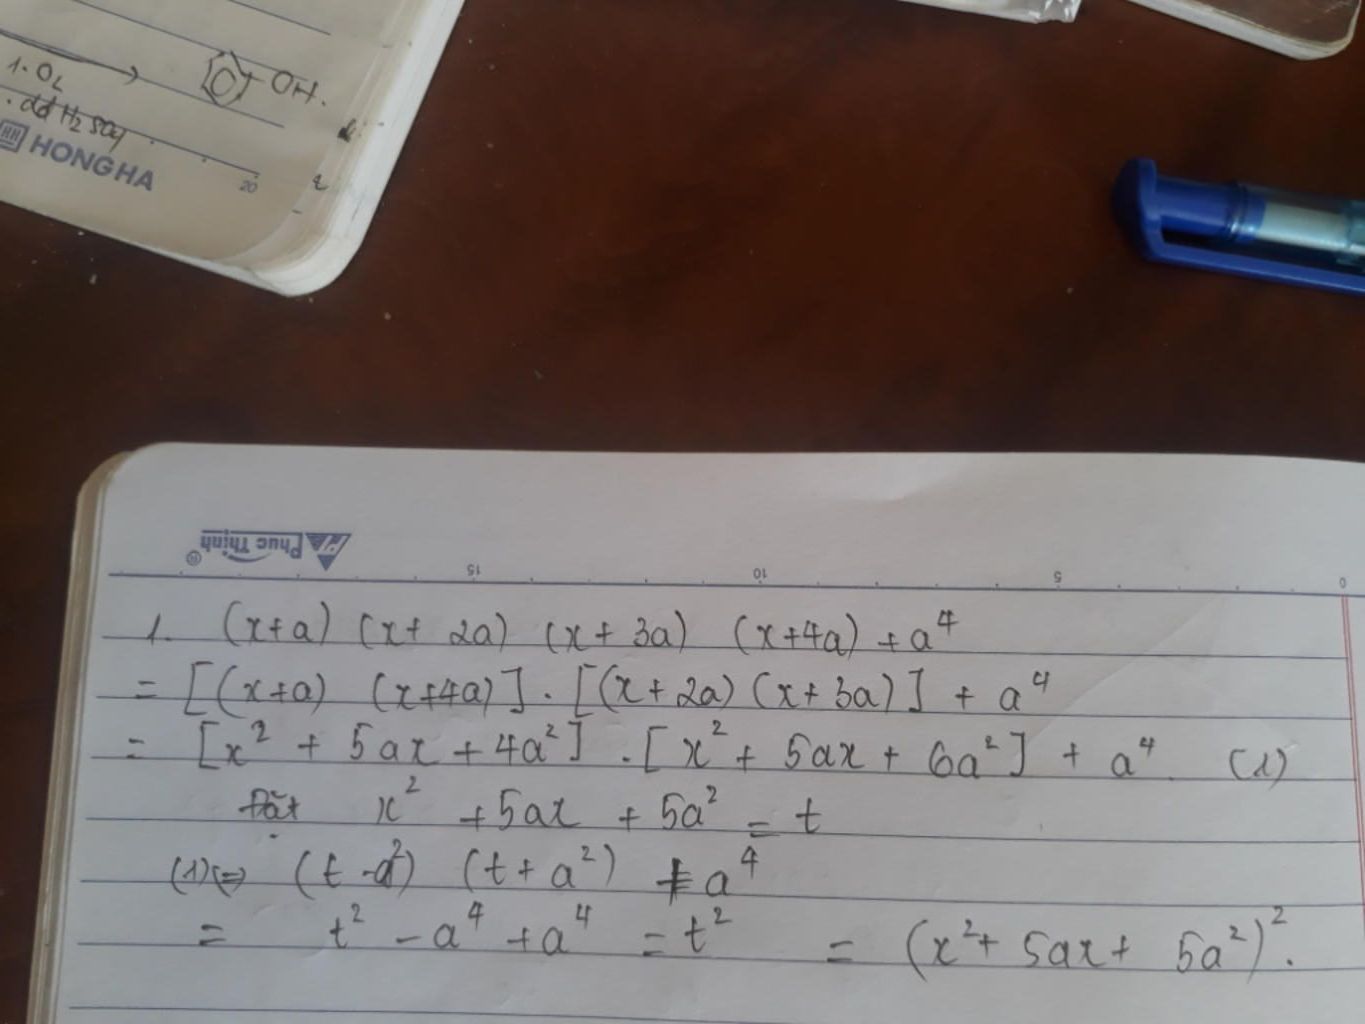 1. O₂
. dd H₂SO₄
OH.
HH HONG HA
20
Phuc Thịnh ®
15 10 5 0
1. (x+a) (x+ 2a) (x+ 3a) (x+4a) + a⁴
= [(x+a) (x+4a)] . [(x+2a) (x+3a)] + a⁴
= [x² + 5ax + 4a²] . [x² + 5ax + 6a²] + a⁴ (1)
Đặt x² + 5ax + 5a² = t
(1) ⇔ (t - a²) (t + a²) + a⁴
= t² - a⁴ + a⁴ = t² = (x² + 5ax + 5a²)².